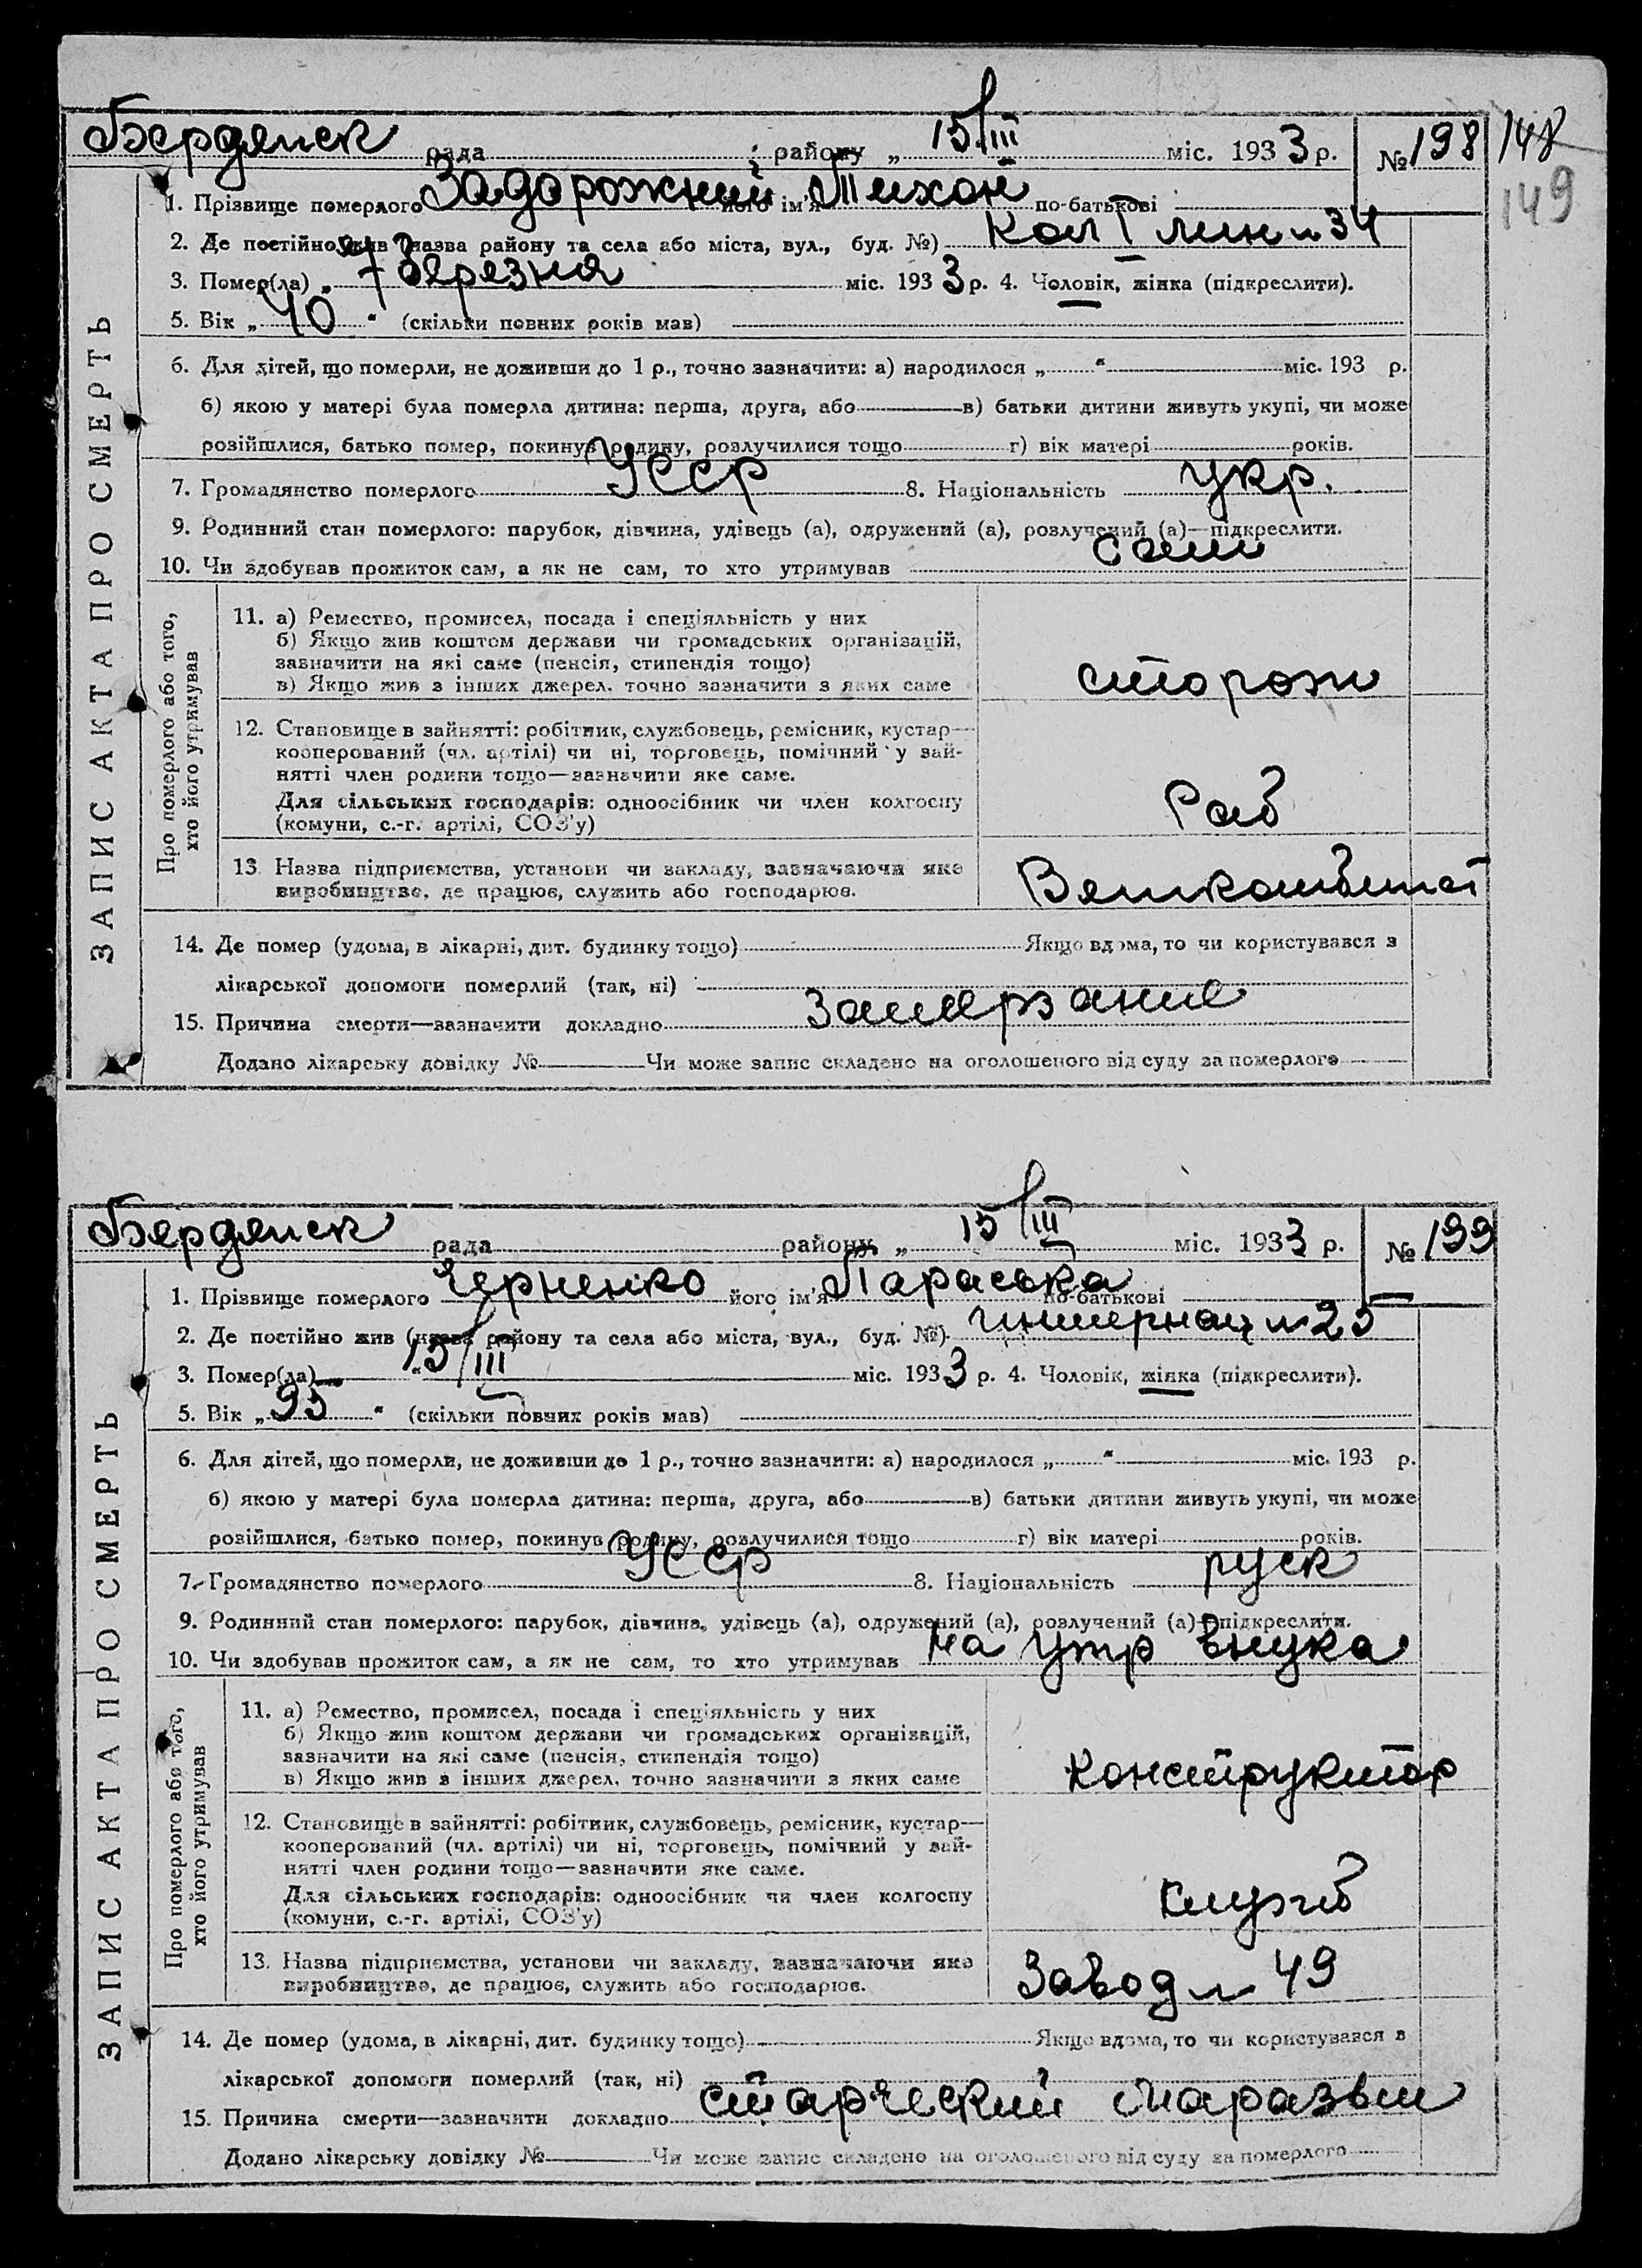 Бердянск рада району „ 15/III міс. 1933 р. № 198 148
149
1. Прізвище померлого Задорожний його ім'я Тихон по-батькові
2. Де постійно жив (назва району та села або міста, вул., буд. №) Кол I лин № 34
3. Помер(ла) „ березня міс. 1933 р. 4. Чоловік, жінка (підкреслити).
5. Вік „ 40 “ (скільки повних років мав)
6. Для дітей, що померли, не доживши до 1 р., точно зазначити: а) народилося „ “ міс. 193 р.
б) якою у матері була померла дитина: перша, друга, або в) батьки дитини живуть укупі, чи може
розійшлися, батько помер, покинув родину, розлучилися тощо г) вік матері років.
7. Громадянство померлого УССР 8. Національність укр.
9. Родинний стан померлого: парубок, дівчина, удівець (а), одружений (а), розлучений (а)—підкреслити.
10. Чи здобував прожиток сам, а як не сам, то хто утримував сам
ЗАПИС АКТА ПРО СМЕРТЬ
Про померлого або того, хто його утримував
11. а) Ремество, промисел, посада і спеціяльність у них
б) Якщо жив коштом держави чи громадських організацій,
зазначити на які саме (пенсія, стипендія тощо)
в) Якщо жив з інших джерел, точно зазначити з яких саме
сторож
12. Становище в зайнятті: робітник, службовець, ремісник, кустар—
кооперований (чл. артілі) чи ні, торговець, помічний у зай-
нятті член родини тощо—зазначити яке саме.
Для сільських господарів: одноосібник чи член колгоспу
(комуни, с.-г. артілі, СОЗ'у)
Раб
13. Назва підприємства, установи чи закладу, зазначаючи яке
виробництво, де працює, служить або господарює.
14. Де помер (удома, в лікарні, дит. будинку тощо) Якщо вдома, то чи користувався з
лікарської допомоги померлий (так, ні)
15. Причина смерти—зазначити докладно Замерзание
Додано лікарську довідку № Чи може запис складено на оголошеного від суду за померлого
Бердянск рада району „ 15/III міс. 1933 р. № 199
1. Прізвище померлого Черненко його ім'я Параська по-батькові
2. Де постійно жив (назва району та села або міста, вул., буд. №) Интернац № 25
3. Помер(ла) „ 15/III міс. 1933 р. 4. Чоловік, жінка (підкреслити).
5. Вік „ 95 “ (скільки повних років мав)
6. Для дітей, що померли, не доживши до 1 р., точно зазначити: а) народилося „ “ міс. 193 р.
б) якою у матері була померла дитина: перша, друга, або в) батьки дитини живуть укупі, чи може
розійшлися, батько помер, покинув родину, розлучилися тощо г) вік матері років.
7. Громадянство померлого УССР 8. Національність руск
9. Родинний стан померлого: парубок, дівчина, удівець (а), одружений (а), розлучений (а)—підкреслити.
10. Чи здобував прожиток сам, а як не сам, то хто утримував на утр внука
ЗАПИС АКТА ПРО СМЕРТЬ
Про померлого або того, хто його утримував
11. а) Ремество, промисел, посада і спеціяльність у них
б) Якщо жив коштом держави чи громадських організацій,
зазначити на які саме (пенсія, стипендія тощо)
в) Якщо жив з інших джерел, точно зазначити з яких саме
Конструктор
12. Становище в зайнятті: робітник, службовець, ремісник, кустар—
кооперований (чл. артілі) чи ні, торговець, помічний у зай-
нятті член родини тощо—зазначити яке саме.
Для сільських господарів: одноосібник чи член колгоспу
(комуни, с.-г. артілі, СОЗ'у)
служб
13. Назва підприємства, установи чи закладу, зазначаючи яке
виробництво, де працює, служить або господарює.
Завод № 49
14. Де помер (удома, в лікарні, дит. будинку тощо) Якщо вдома, то чи користувався в
лікарської допомоги померлий (так, ні)
15. Причина смерти—зазначити докладно старческий маразьм
Додано лікарську довідку № Чи може запис складено на оголошеного від суду за померлого